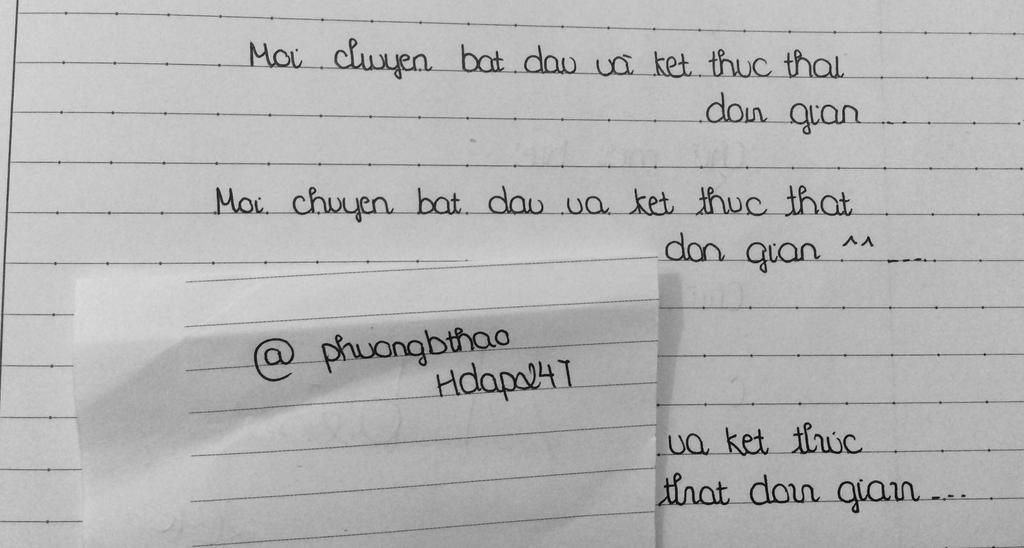 Moi chuyen bat dau va ket thuc that
don gian ...
Moi chuyen bat dau va ket thuc that
don gian ^^ ....
@ phuongbthao
Hdapa24T
va ket thuc
that don gian ....